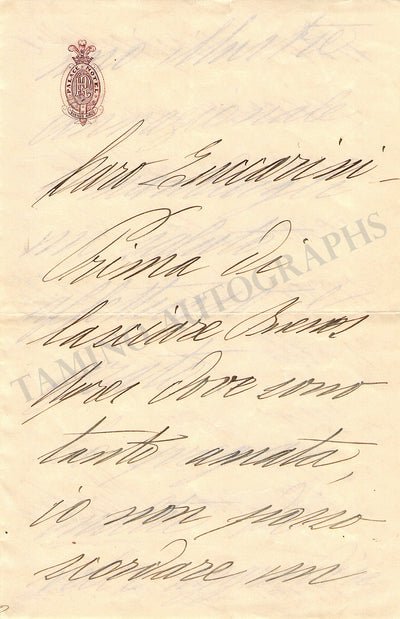 PALACE HOTEL
Caro Zuccarini -
Prima di
lasciare Buenos
Ayres dove sono
tanto amata,
io non posso
scordare un
TAMINO AUTOGRAPHS